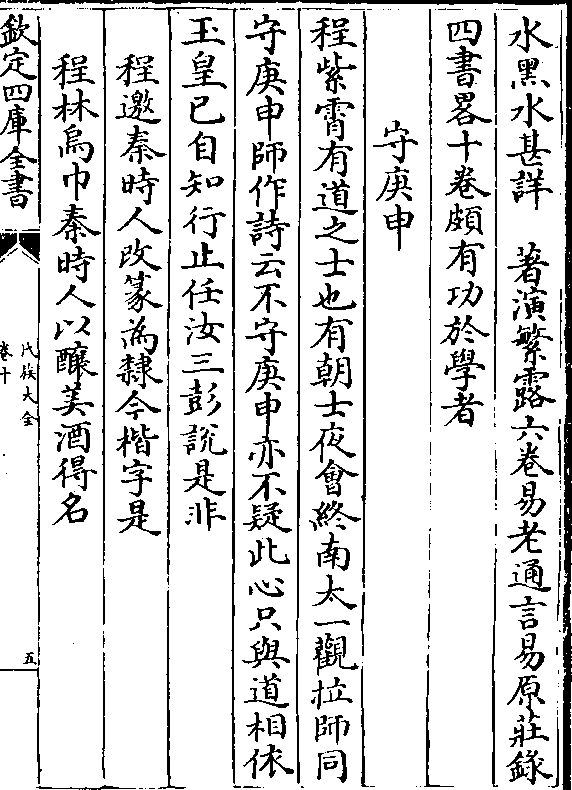 水黑水甚詳　著演繁露六卷易老通言易原莊錄
四書畧十卷頗有功於學者
守庚申
程紫霄有道之士也有朝士夜會終南太一觀拉師同
守庚申師作詩云不守庚申亦不疑此心只與道相依
玉皇已自知行止任汝三彭說是非
程邈秦時人改篆為隸今楷字是
程林烏巾秦時人以釀美酒得名
欽定四庫全書
氏族大全
卷十
五